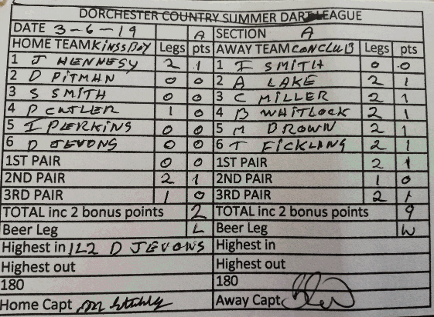 DORCHESTER COUNTRY SUMMER DARTS LEAGUE
DATE 3-6-19 A SECTION A
HOME TEAM KINGS BOY Legs pts AWAY TEAM CON CLUB Legs pts
1 J HENNESY 2 1 1 I SMITH 0 0
2 D PITMAN 0 0 2 A LAKE 2 1
3 S SMITH 0 0 3 C MILLER 2 1
4 P CUTLER 1 0 4 B WHITLOCK 2 1
5 I PERKINS 0 0 5 M DROWN 2 1
6 D JEVONS 0 0 6 T FICKLING 2 1
1ST PAIR 0 0 1ST PAIR 2 1
2ND PAIR 2 1 2ND PAIR 1 0
3RD PAIR 1 0 3RD PAIR 2 1
TOTAL inc 2 bonus points 2 TOTAL inc 2 bonus points 9
Beer Leg L Beer Leg W
Highest in 112 D JEVONS Highest in
Highest out Highest out
180 180
Home Capt Away Capt